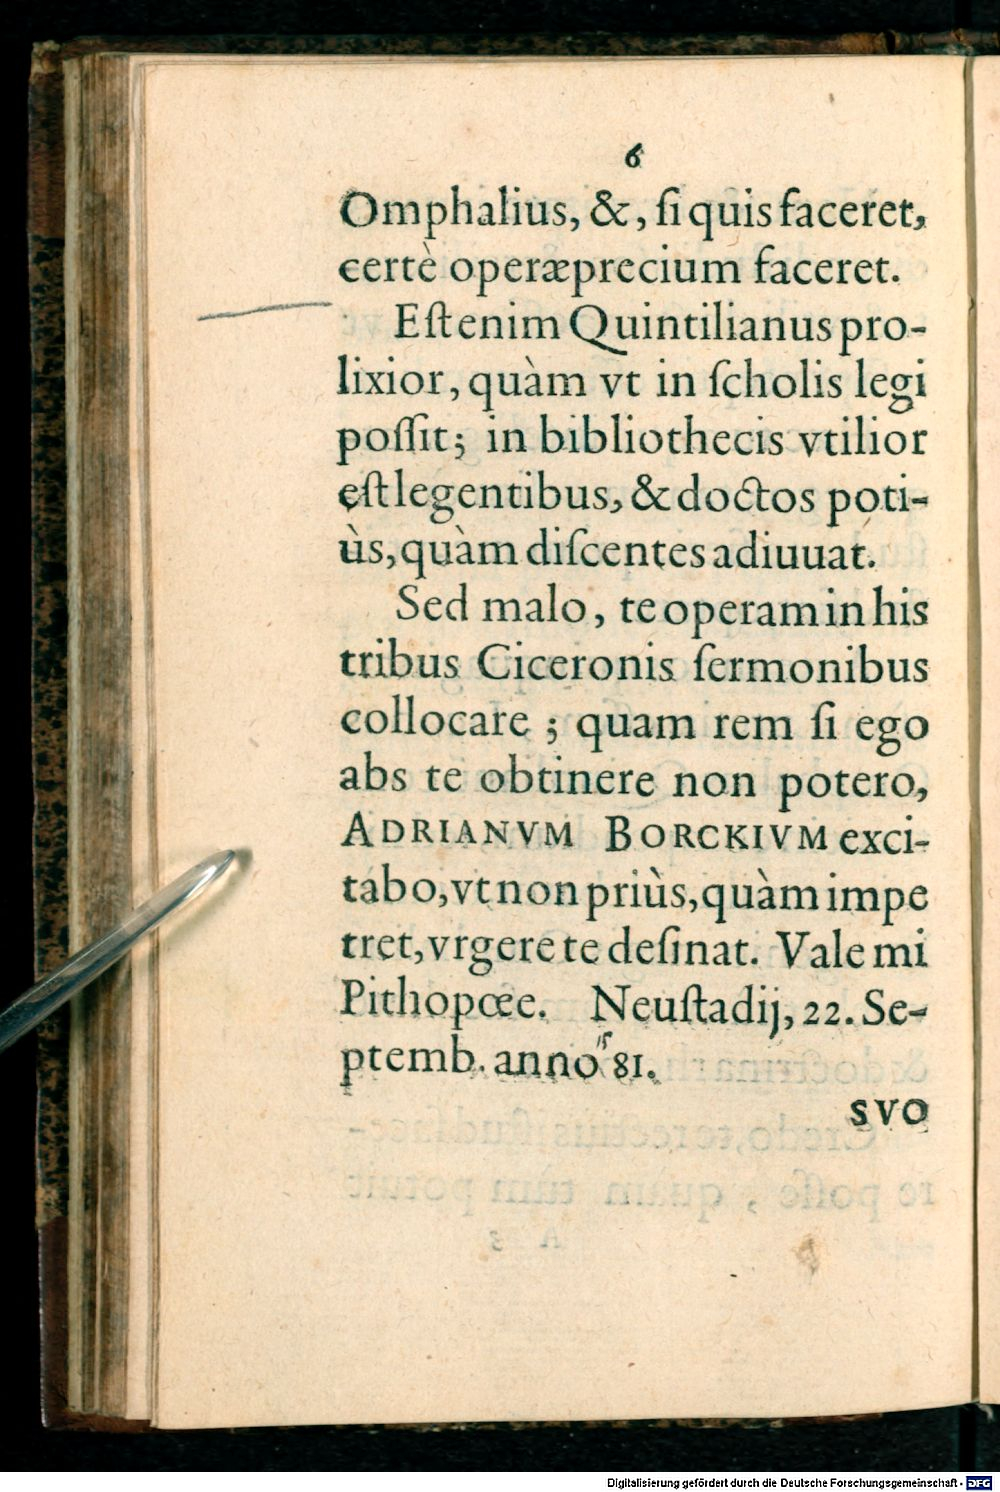 6
Omphalius, &, ſi quis faceret,
certè operæprecium faceret.
Eſt enim Quintilianus pro-
lixior, quàm vt in ſcholis legi
poſſit; in bibliothecis vtilior
eſt legentibus, & doctos poti-
ùs, quàm diſcentes adiuuat.
Sed malo, te operam in his
tribus Ciceronis ſermonibus
collocare; quam rem ſi ego
abs te obtinere non potero,
ADRIANVM BORCKIVM exci-
tabo, vt non priùs, quàm impe
tret, vrgere te deſinat. Vale mi
Pithopœe. Neuſtadij, 22. Se-
ptemb. anno 81.
SVO
Digitalisierung gefördert durch die Deutsche Forschungsgemeinschaft - DFG